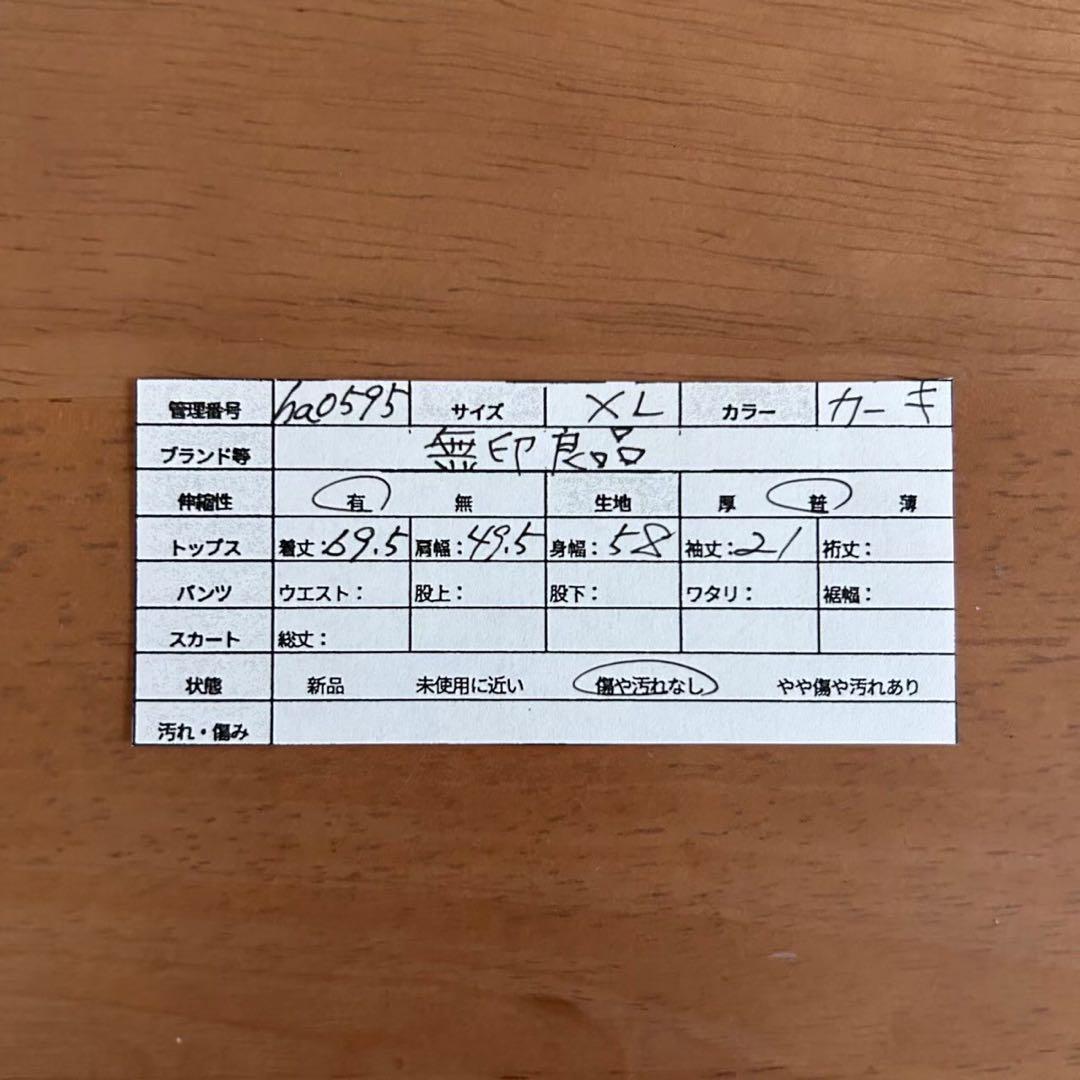 管理番号 ha0595 サイズ XL カラー カーキ
ブランド等 無印良品
伸縮性 有 無 生地 厚 普 薄
トップス 着丈:69.5 肩幅:49.5 身幅:58 袖丈:21 裄丈:
パンツ ウエスト: 股上: 股下: ワタリ: 裾幅:
スカート 総丈:
状態 新品 未使用に近い 傷や汚れなし やや傷や汚れあり
汚れ・傷み